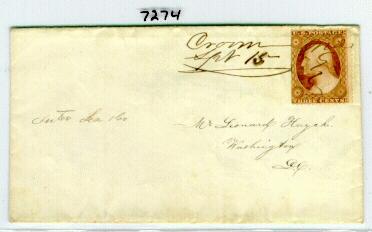 7274
Croom
Sept 15
U.S. POSTAGE
THREE CENTS
Mr Leonard
Washington
D.C.